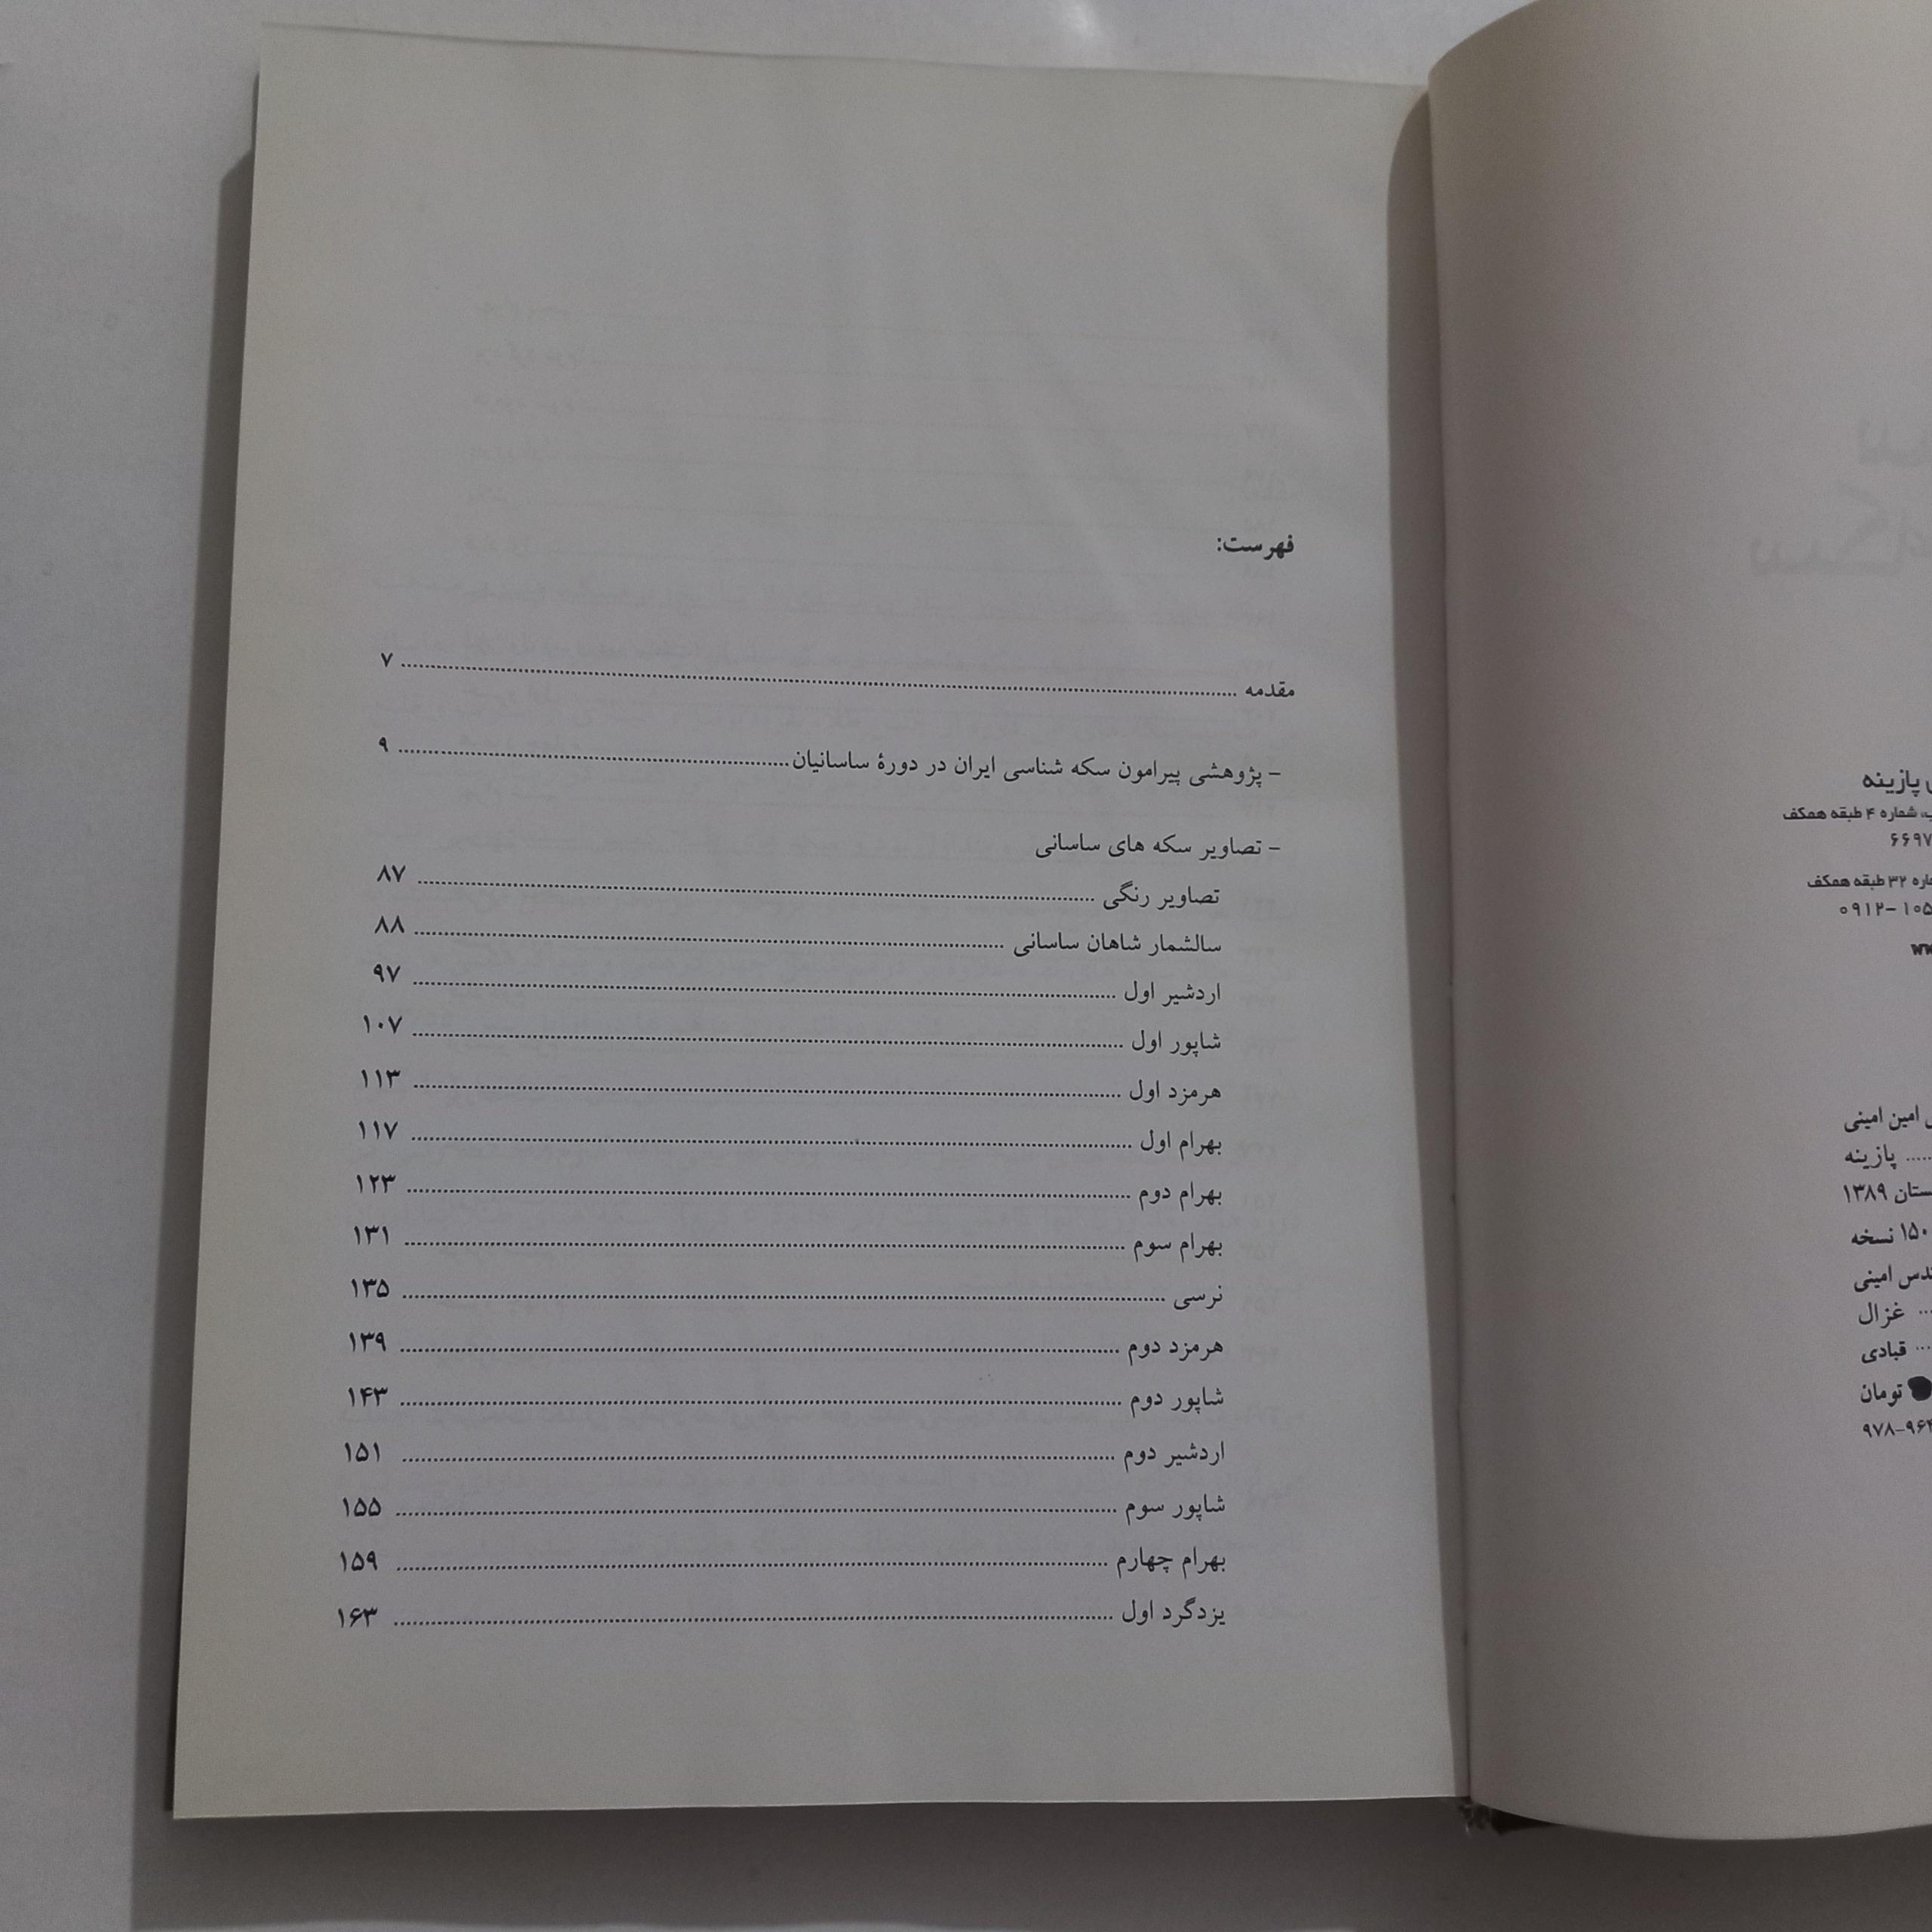 پازینه
شماره ۴ طبقه همکف
۶۶۹۷
۳۲ طبقه همکف
۰۹۱۲-۱۰۵
امین امینی
پازینه
۱۳۸۹
نسخه
امینی
غزال
قبادی
تومان
۹۷۸-۹۶۴
فهرست:
مقدمه ........ ۷
- پژوهشی پیرامون سکه شناسی ایران در دورهٔ ساسانیان ........ ۹
- تصاویر سکه های ساسانی
تصاویر رنگی ........ ۸۷
سالشمار شاهان ساسانی ........ ۸۸
اردشیر اول ........ ۹۷
شاپور اول ........ ۱۰۷
هرمزد اول ........ ۱۱۳
بهرام اول ........ ۱۱۷
بهرام دوم ........ ۱۲۳
بهرام سوم ........ ۱۳۱
نرسی ........ ۱۳۵
هرمزد دوم ........ ۱۳۹
شاپور دوم ........ ۱۴۳
اردشیر دوم ........ ۱۵۱
شاپور سوم ........ ۱۵۵
بهرام چهارم ........ ۱۵۹
یزدگرد اول ........ ۱۶۳